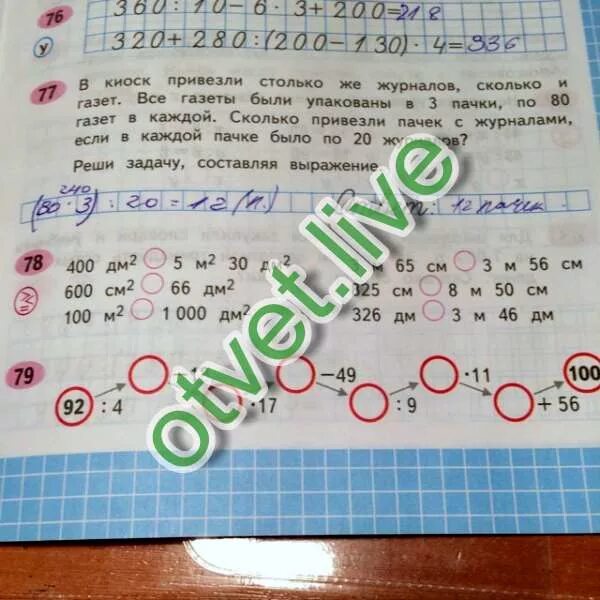 76 360 : 10 − 6 · 3 + 200 = 218
У 320 + 280 : (200 − 130) · 4 = 336
77 В киоск привезли столько же журналов, сколько и
газет. Все газеты были упакованы в 3 пачки, по 80
газет в каждой. Сколько привезли пачек с журналами,
если в каждой пачке было по 20 журналов?
Реши задачу, составляя выражение.
240
(80 · 3) : 20 = 12 (п.) 12 пачек.
78 400 дм² 5 м² 30 дм² м 65 см 3 м 56 см
600 см² 66 дм² 825 см 8 м 50 см
100 м² 1 000 дм² 326 дм 3 м 46 дм
79 −49 ·11 100
92 : 4 ·17 : 9 + 56
otvet.live